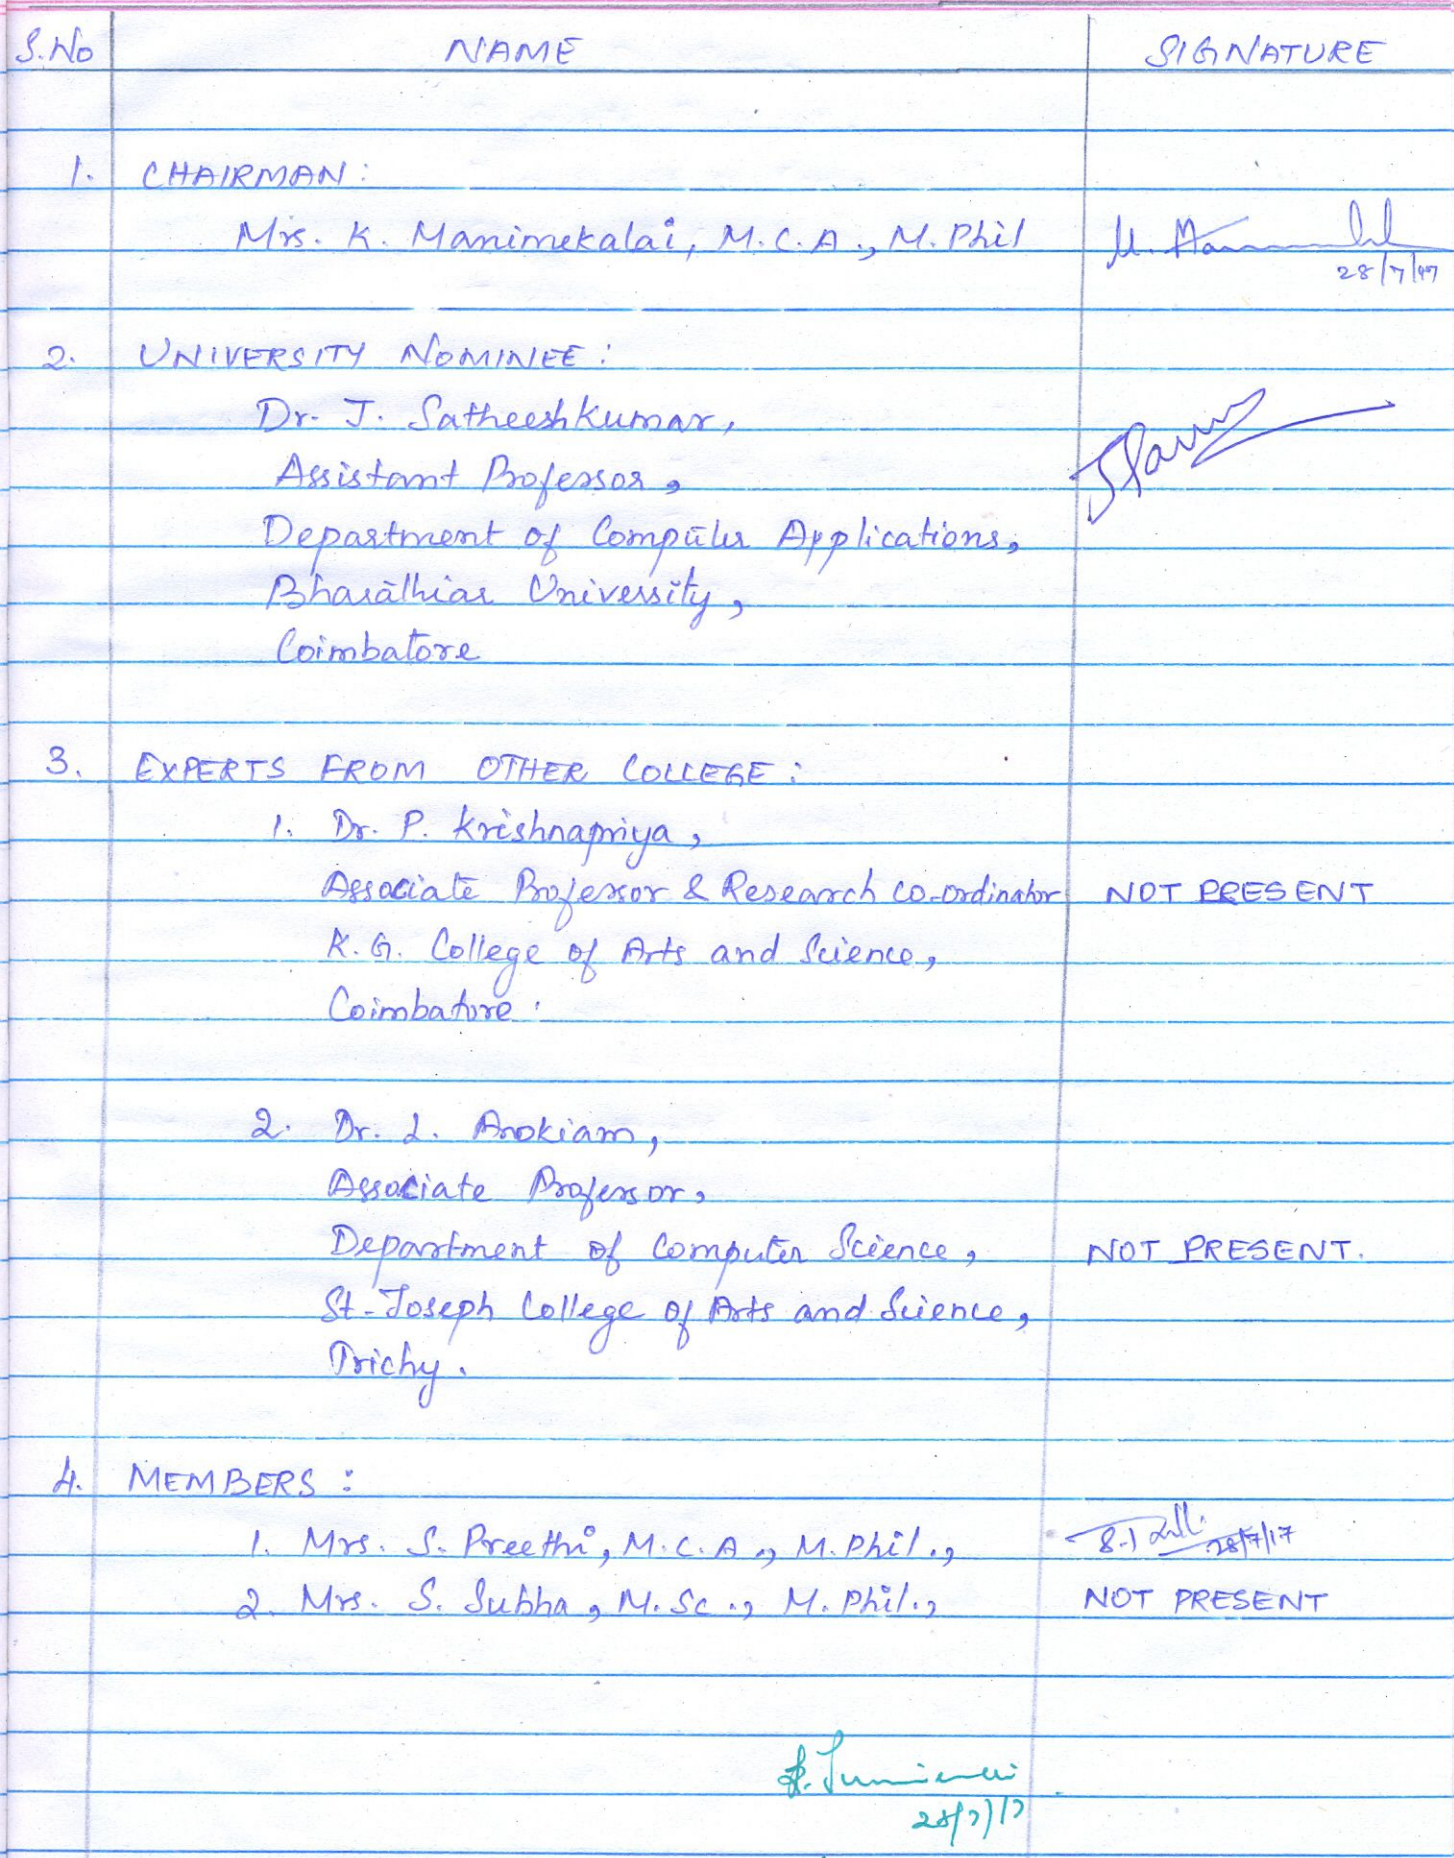 S.No NAME SIGNATURE
1. CHAIRMAN:
Mrs. K. Manimekalai, M.C.A., M.Phil
28/7/17
2. UNIVERSITY NOMINEE:
Dr. J. Satheeshkumar,
Assistant Professor,
Department of Computer Applications,
Bharathiar University,
Coimbatore
3. EXPERTS FROM OTHER COLLEGE:
1. Dr. P. Krishnapriya,
Associate Professor & Research Co-ordinator NOT PRESENT
K.G. College of Arts and Science,
Coimbatore.
2. Dr. L. Arokiam,
Associate Professor,
Department of Computer Science, NOT PRESENT.
St-Joseph College of Arts and Science,
Trichy.
4. MEMBERS:
1. Mrs. S. Preethi, M.C.A., M.Phil., 28/7/17
2. Mrs. S. Subha, M.Sc., M.Phil., NOT PRESENT
28/7/17